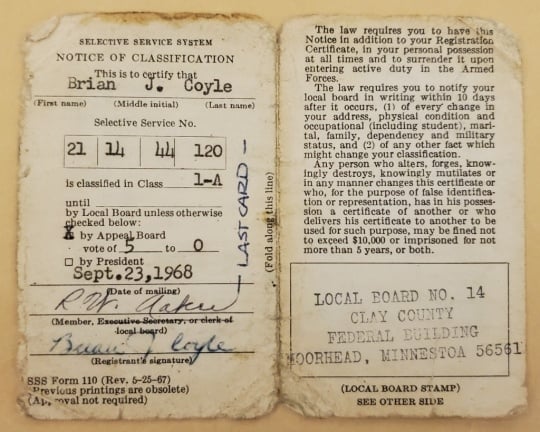 SELECTIVE SERVICE SYSTEM
NOTICE OF CLASSIFICATION
This is to certify that
Brian J. Coyle
(First name) (Middle initial) (Last name)
Selective Service No.
21 14 44 120
is classified in Class 1-A
until
by Local Board unless otherwise
checked below:
X by Appeal Board
vote of 5 to 0
by President
Sept. 23,1968
(Date of mailing)
R W.
(Member, Executive Secretary, or clerk of
local board)
Brian J. Coyle
(Registrant's signature)
SSS Form 110 (Rev. 5-25-67)
(Previous printings are obsolete)
(Approval not required)
— LAST CARD —
(Fold along this line)
The law requires you to have this
Notice in addition to your Registration
Certificate, in your personal possession
at all times and to surrender it upon
entering active duty in the Armed
Forces.
The law requires you to notify your
local board in writing within 10 days
after it occurs, (1) of every change in
your address, physical condition and
occupational (including student), mari-
tal, family, dependency and military
status, and (2) of any other fact which
might change your classification.
Any person who alters, forges, know-
ingly destroys, knowingly mutilates or
in any manner changes this certificate or
who, for the purpose of false identifica-
tion or representation, has in his posses-
sion a certificate of another or who
delivers his certificate to another to be
used for such purpose, may be fined not
to exceed $10,000 or imprisoned for not
more than 5 years, or both.
LOCAL BOARD NO. 14
CLAY COUNTY
FEDERAL BUILDING
MOORHEAD, MINNESTOA 56561
(LOCAL BOARD STAMP)
SEE OTHER SIDE